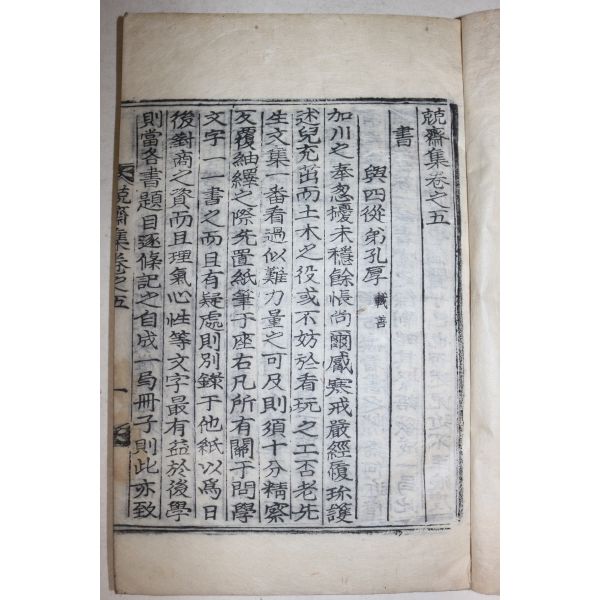 兢齋集卷之五
書
與四從弟孔厚 載善
加川之奉忽擾未穩餘悵尚爾歲寒戒嚴經履珎護
述兒充茁而土木之役或不妨於看玩之工否老先
生文集一番看過似難力量之可及則須十分精察
反覆紬繹之際先置紙筆于座右凡所有關于問學
文字一一書之而且有疑處則別錄于他紙以爲日
後對商之資而且理氣心性等文字最有益於後學
則當各書題目逐條記之自成一局冊子則此亦致
兢齋集卷之五 一